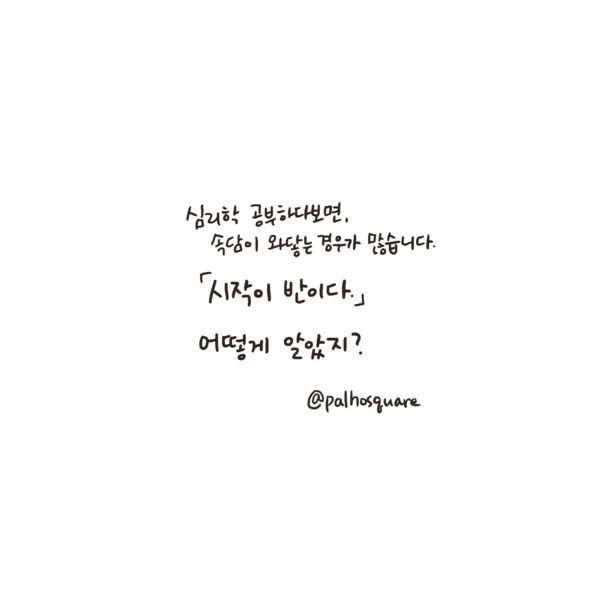 심리학 공부하다보면,
속담이 와닿는 경우가 많습니다.
「시작이 반이다.」
어떻게 알았지?
@palhosquare